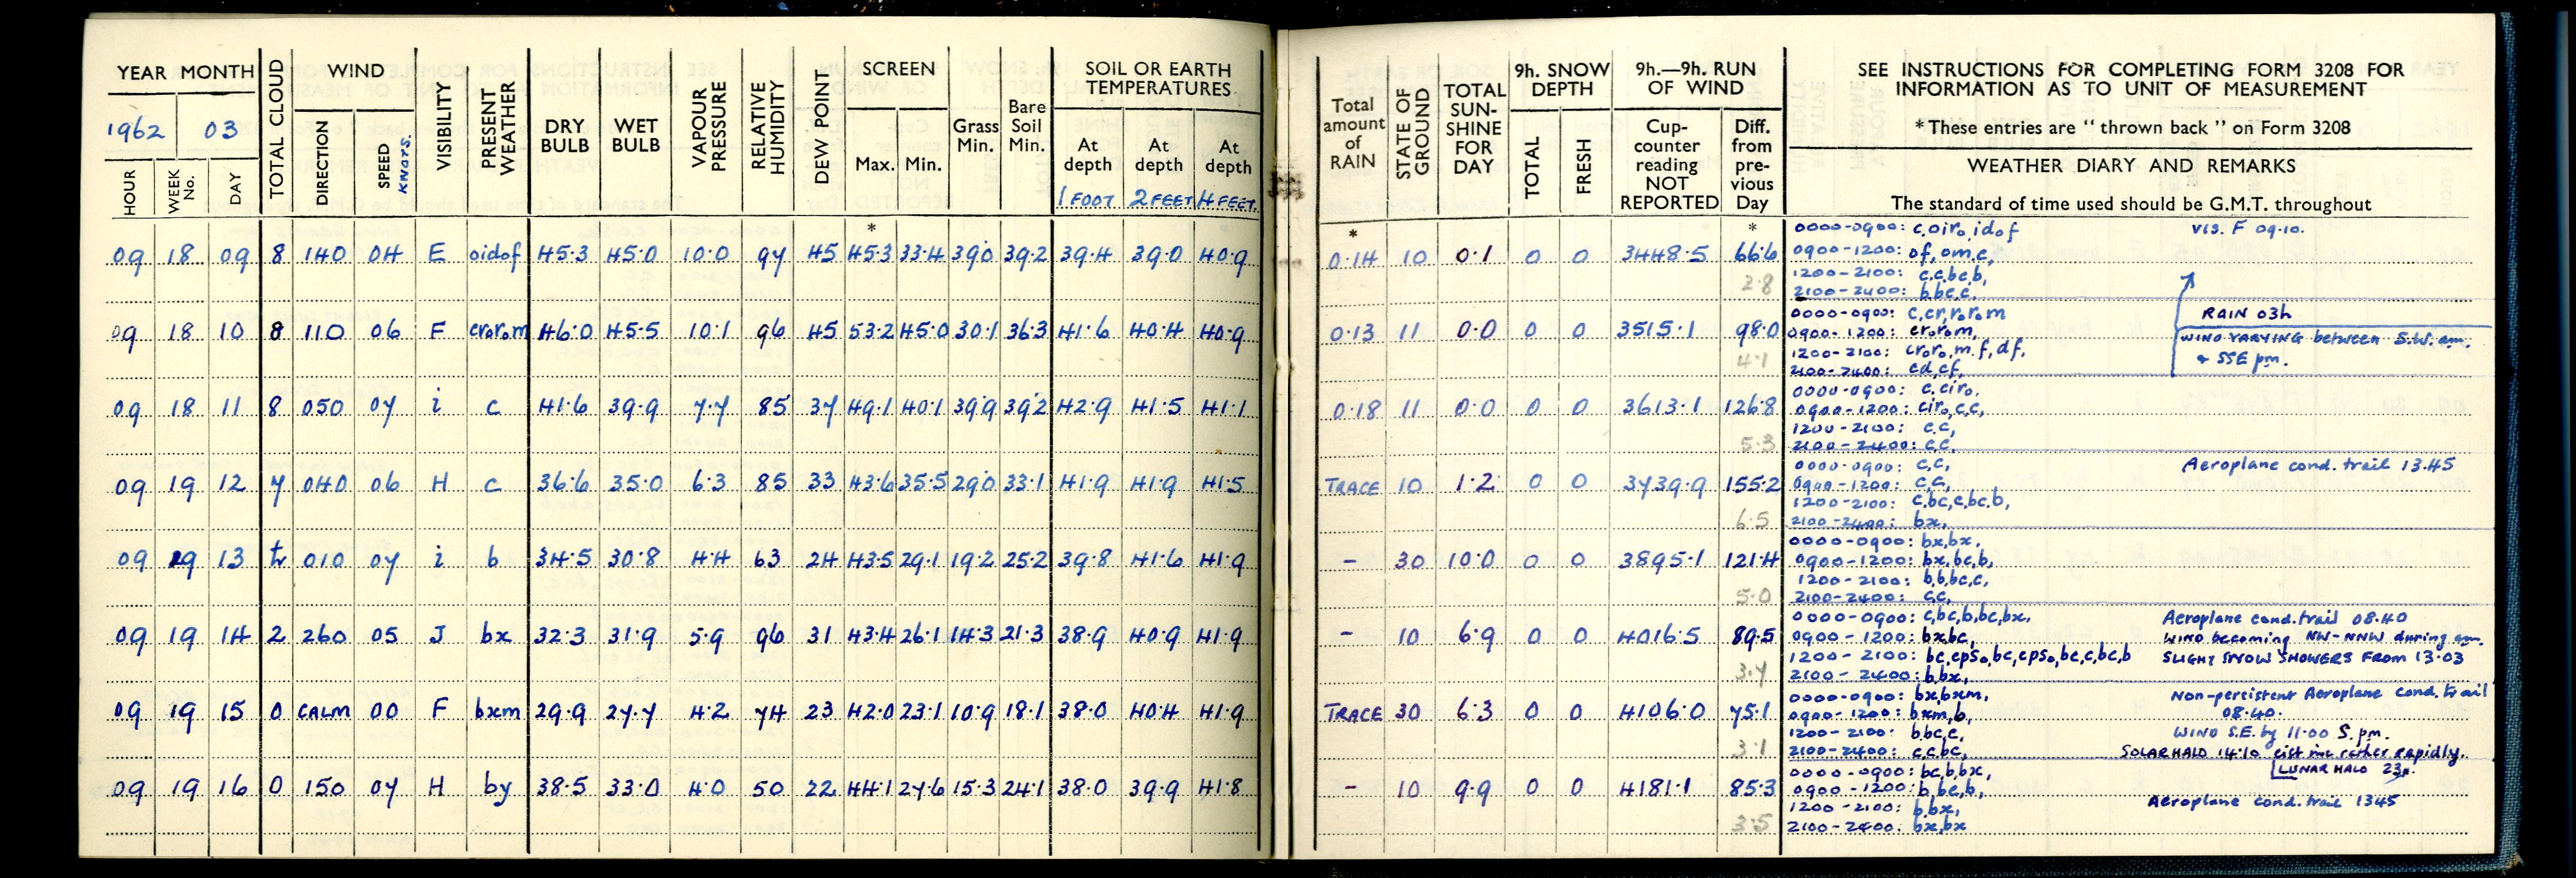 YEAR MONTH
1962 03
HOUR WEEK No. DAY
TOTAL CLOUD
WIND
DIRECTION SPEED KNOTS.
VISIBILITY
PRESENT WEATHER
DRY BULB
WET BULB
VAPOUR PRESSURE
RELATIVE HUMIDITY
DEW POINT
SCREEN
Max. Min.
Grass Min.
Bare Soil Min.
SOIL OR EARTH TEMPERATURES
At depth 1 FOOT
At depth 2 FEET
At depth 4 FEET.
Total amount of RAIN
STATE OF GROUND
TOTAL SUN-SHINE FOR DAY
9h. SNOW DEPTH
TOTAL FRESH
9h.—9h. RUN OF WIND
Cup-counter reading NOT REPORTED
Diff. from pre-vious Day
SEE INSTRUCTIONS FOR COMPLETING FORM 3208 FOR
INFORMATION AS TO UNIT OF MEASUREMENT
* These entries are "thrown back" on Form 3208
WEATHER DIARY AND REMARKS
The standard of time used should be G.M.T. throughout
* * *
09 18 09 8 140 04 E oidof 45.3 45.0 10.0 97 45 45.3 33.4 39.0 39.2 39.4 39.0 40.9 0.14 10 0.1 0 0 3448.5 66.6
2.8
0000-0900: c,oiro,idof vis. F 09-10.
0900-1200: of,om,c,
1200-2100: c,c,bc,b,
2100-2400: b,bc,c,
09 18 10 8 110 06 F crorom 46.0 45.5 10.1 96 45 53.2 45.0 30.1 36.3 41.6 40.4 40.9 0.13 11 0.0 0 0 3515.1 98.0
4.1
0000-0900: c,cr,rorom RAIN 03h
0900-1200: crorom, WIND VARYING between S.W. am.
1200-2100: croro,m,f,df, & SSE pm.
2100-2400: cd,cf,
09 18 11 8 050 07 i c 41.6 39.9 7.7 85 37 49.1 40.1 39.9 39.2 42.9 41.5 41.1 0.18 11 0.0 0 0 3613.1 126.8
5.3
0000-0900: c,ciro,
0900-1200: ciro,c,c,
1200-2100: c,c,
2100-2400: c,c,
09 19 12 7 040 06 H c 36.6 35.0 6.3 85 33 43.6 35.5 29.0 33.1 41.9 41.9 41.5 TRACE 10 1.2 0 0 3739.9 155.2
6.5
0000-0900: c,c, Aeroplane cond. trail 13.45
0900-1200: c,c,
1200-2100: c,bc,c,bc,b,
2100-2400: bx,
09 19 13 tr 010 07 i b 34.5 30.8 4.4 63 24 43.5 29.1 19.2 25.2 39.8 41.6 41.9 - 30 10.0 0 0 3895.1 121.4
5.0
0000-0900: bx,bx,
0900-1200: bx,bc,b,
1200-2100: b,b,bc,c,
2100-2400: c,c,
09 19 14 2 260 05 J bx 32.3 31.9 5.9 96 31 43.4 26.1 14.3 21.3 38.9 40.9 41.9 - 10 6.9 0 0 4016.5 89.5
3.7
0000-0900: c,bc,b,bc,bx, Aeroplane cond. trail 08.40
0900-1200: bx,bc, WIND becoming NW-NNW during am.
1200-2100: bc,cpso,bc,cpso,bc,c,bc,b SLIGHT SNOW SHOWERS FROM 13.03
2100-2400: b,bx,
09 19 15 0 CALM 00 F bxm 29.9 27.7 4.2 74 23 42.0 23.1 10.9 18.1 38.0 40.4 41.9 TRACE 30 6.3 0 0 4106.0 75.1
3.1
0000-0900: bx,bxm, Non-persistent Aeroplane cond. trail
0900-1200: bxm,b, 08.40.
1200-2100: b,bc,c, WIND S.E. by 11.00 S. pm.
2100-2400: c,c,bc, SOLAR HALO 14.10 rather rapidly.
09 19 16 0 150 07 H by 38.5 33.0 4.0 50 22 44.1 27.6 15.3 24.1 38.0 39.9 41.8 - 10 9.9 0 0 4181.1 85.3
3.5
0000-0900: bc,b,bx, LUNAR HALO 23h.
0900-1200: b,bc,b,
1200-2100: b,bx, Aeroplane cond. trail 1345
2100-2400: bx,bx